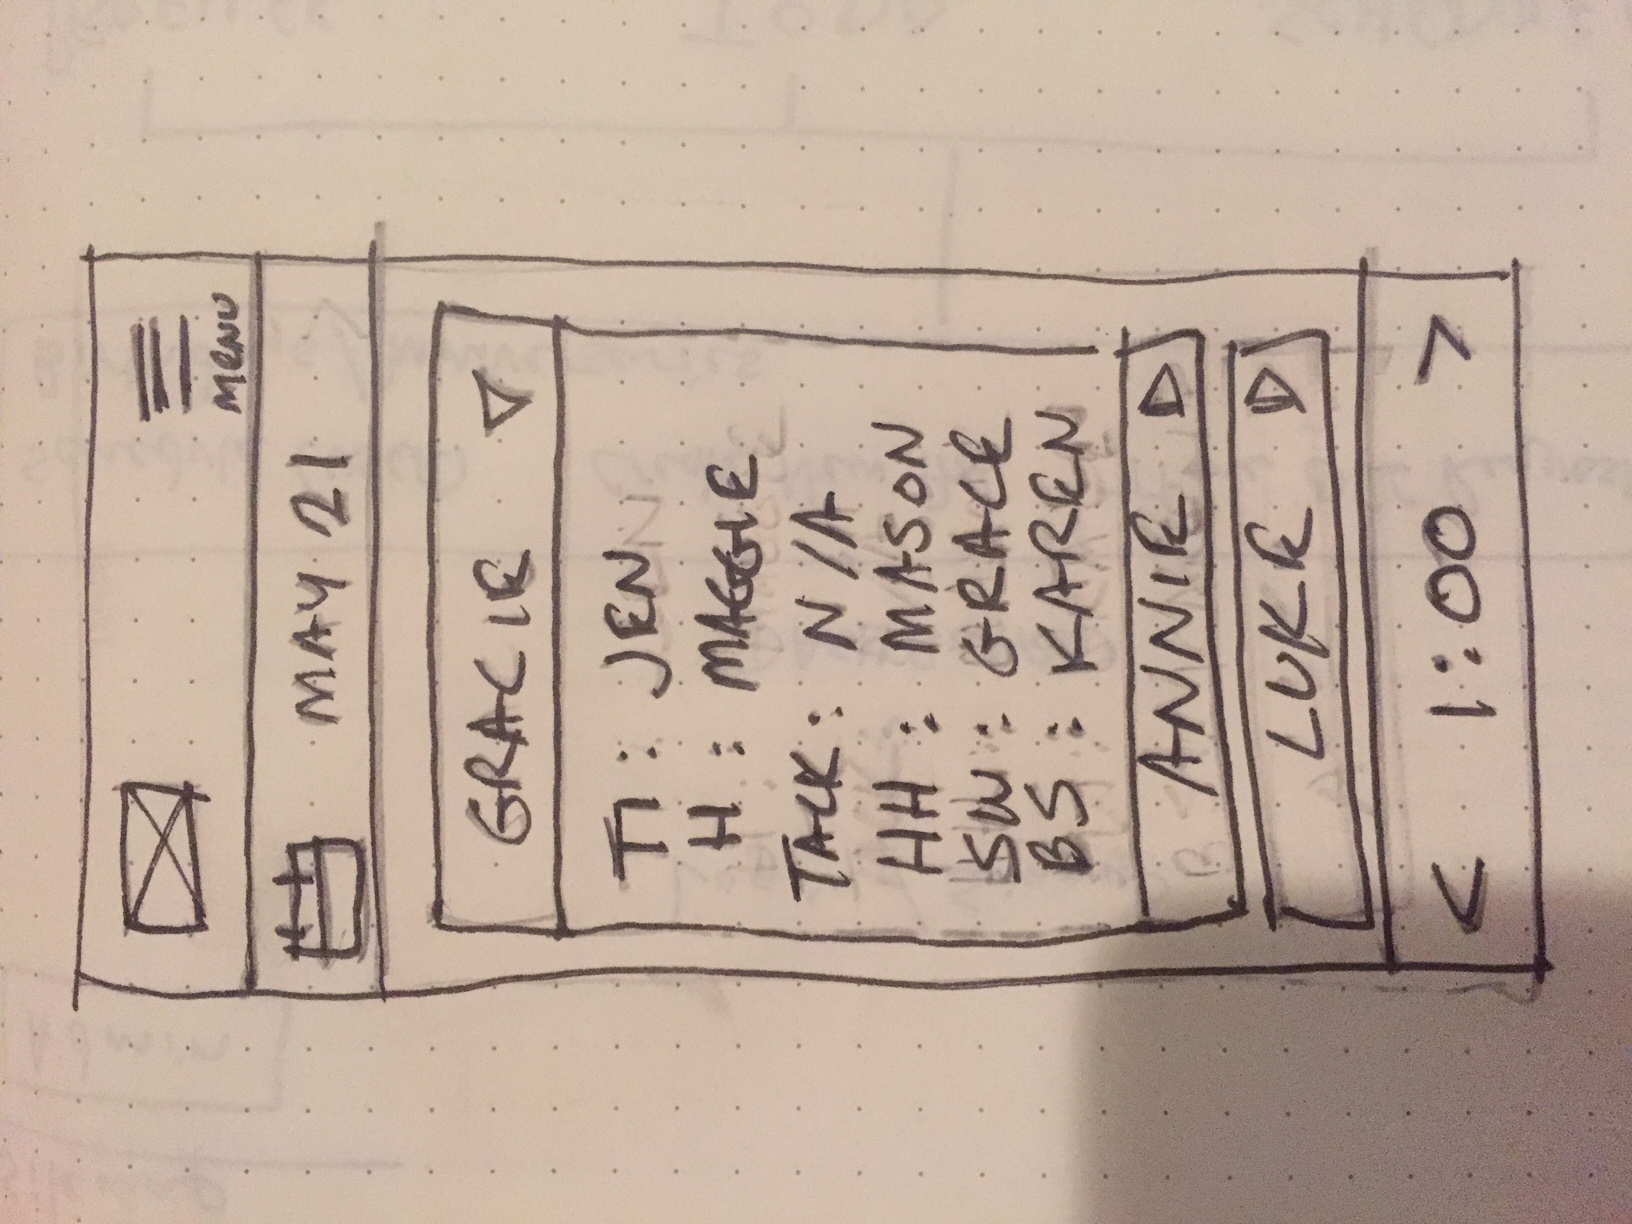 MENU
MAY 21
GRACIE
TI : JEN
H : MAGGIE
TACK : N/A
HH : MASON
SW : GRACE
BS : KAREN
ANNIE
LUKE
< 1:00 >